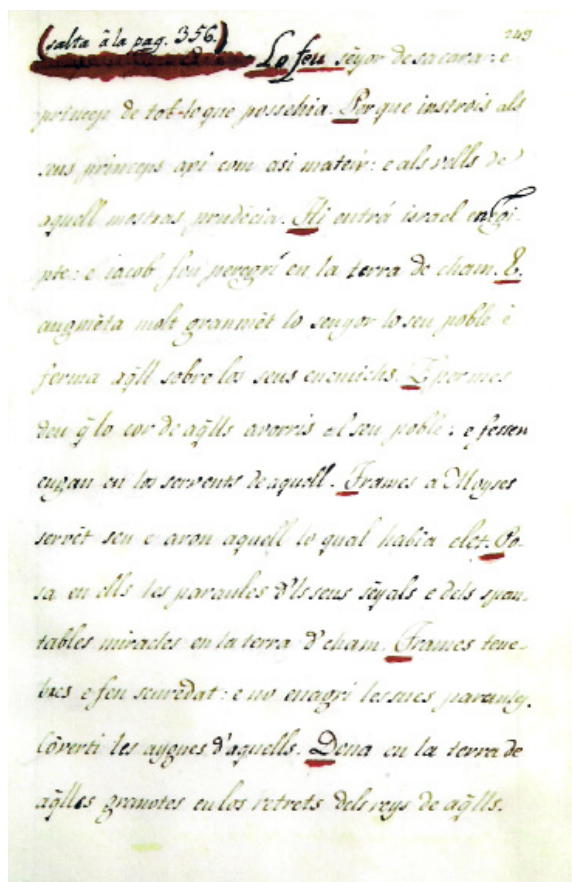 249
(salta â la pag. 356.)
Lo feu señor de sa casa: e
princep de tot lo que possehia. Per que instrois als
seus princeps axi com asi mateix: e als vells de
aquell mostras prudēcia. Hi entrá israel en Egi-
pte: e iacob fou peregrí en la terra de cham. E
augmēta molt granmēt lo senyor lo seu poble e
ferma aq̃ll sobre los seus enemichs. E permes
deu q̃ lo cor de aq̃lls avorris el seu poble: e fessen
engan en los servents de aquell. Trames a Moyses
servēt seu e aron aquell lo qual habia elet. Po-
sa en ells les paraules d'ls seus señals e dels span-
tables miracles en la terra d'cham. Trames tene-
bres e feu scuredat: e no enagri les sues paraules.
Cōverti les aygues d'aquells. Dona en la terra de
aq̃lles granotes en los retrets dels reys de aq̃lls.